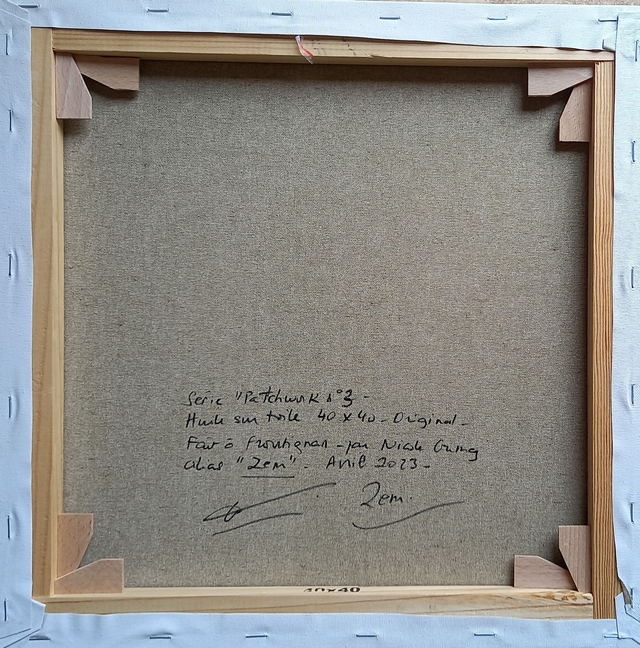 Serie "Patchwork n°3 -
Huile sur toile 40 x 40 - Original -
Fait à Frontignan - par Nicole
alias "Zem" - Avril 2023 -
Zem.
40x40